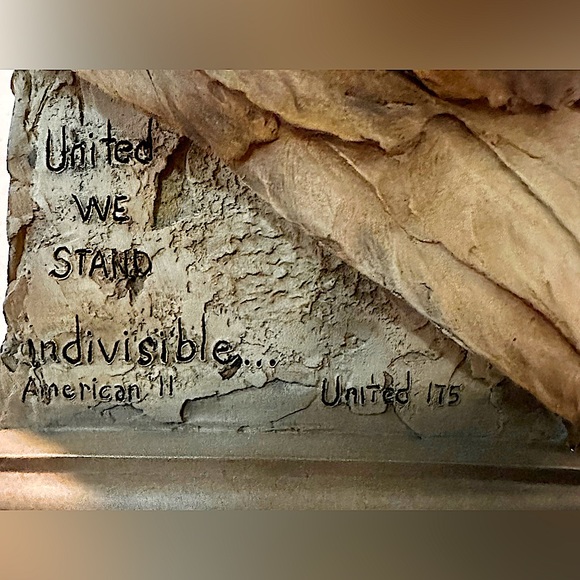 United
WE
STAND
indivisible...
American 11 United 175